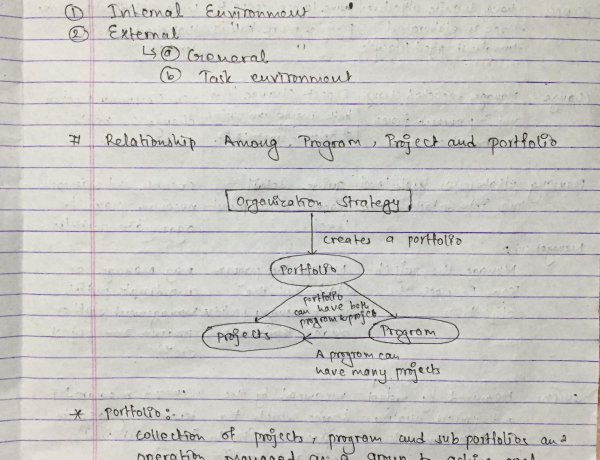 ① Internal Environment
② External
↳ ⓐ General
ⓑ Task environment
# Relationship Among Program, Project and portfolio
Organization Strategy
creates a portfolio
Portfolio
portfolio
can have both
program & project
Projects
Program
A program can
have many projects
* portfolio:-
collection of projects, program and sub portfolios and
operation managed as a group to achieve